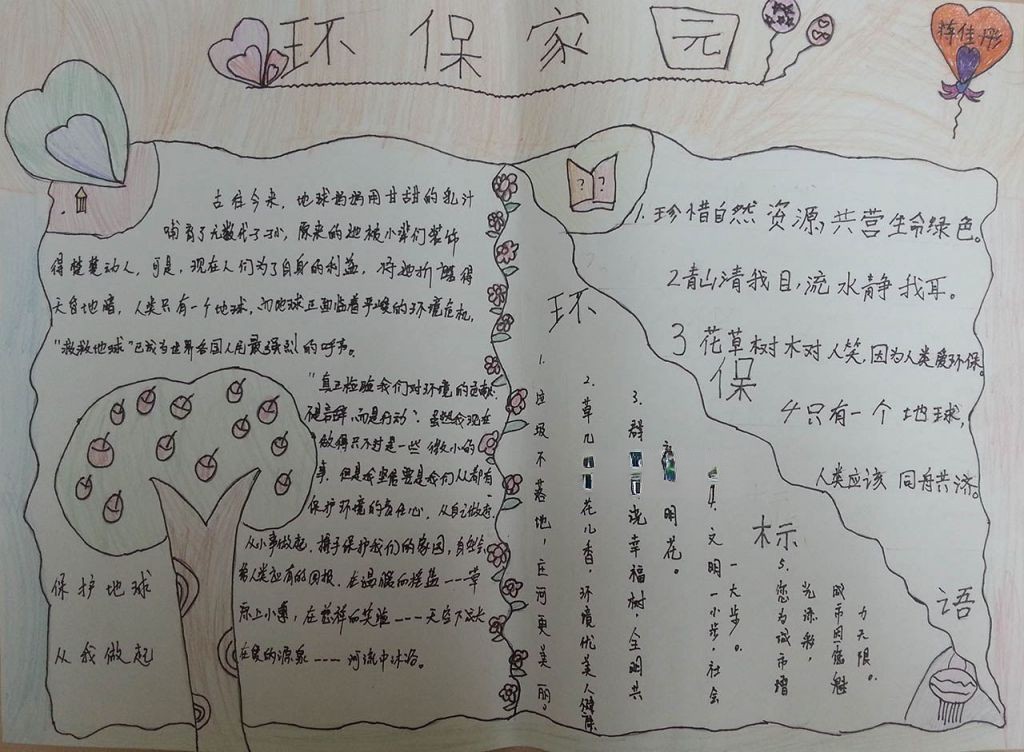 环保家园
佳彤
古往今来，地球妈妈用甘甜的乳汁
哺育了无数代子孙，原来的她被小辈们装饰
得楚楚动人，可是，现在人们为了自身的利益，将她折磨得
天昏地暗，人类只有一个地球，而地球正面临着严峻的环境危机，
"救救地球"已成为世界各国人民最强烈的呼声。
"真正检验我们对环境的贡献
不是言辞，而是行动"。虽然我现在
做得只不过是一些微小的
事，但是我坚信要是我们从都有
保护环境的责任心，从自己做起，
从小事做起，携手保护我们的家园，自然会
给人类应有的回报。在温暖的摇篮---草
原上小憩，在慈祥的笑脸----天空下
在爱的源泉----河流中沐浴。
保护地球
从我做起
环保标语
1.垃圾不落地，庄河更美丽。
2.草儿
花儿香，环境优美人健康
3.群
浇幸福树，全明共
明花。
4.文明一小步，社会
一大步。
5.您为城市增
光添彩，
城市因您魅
力无限。
1.珍惜自然资源，共营生命绿色。
2青山清我目，流水静我耳。
3花草树木对人笑，因为人类爱环保。
4只有一个地球，
人类应该同舟共济。